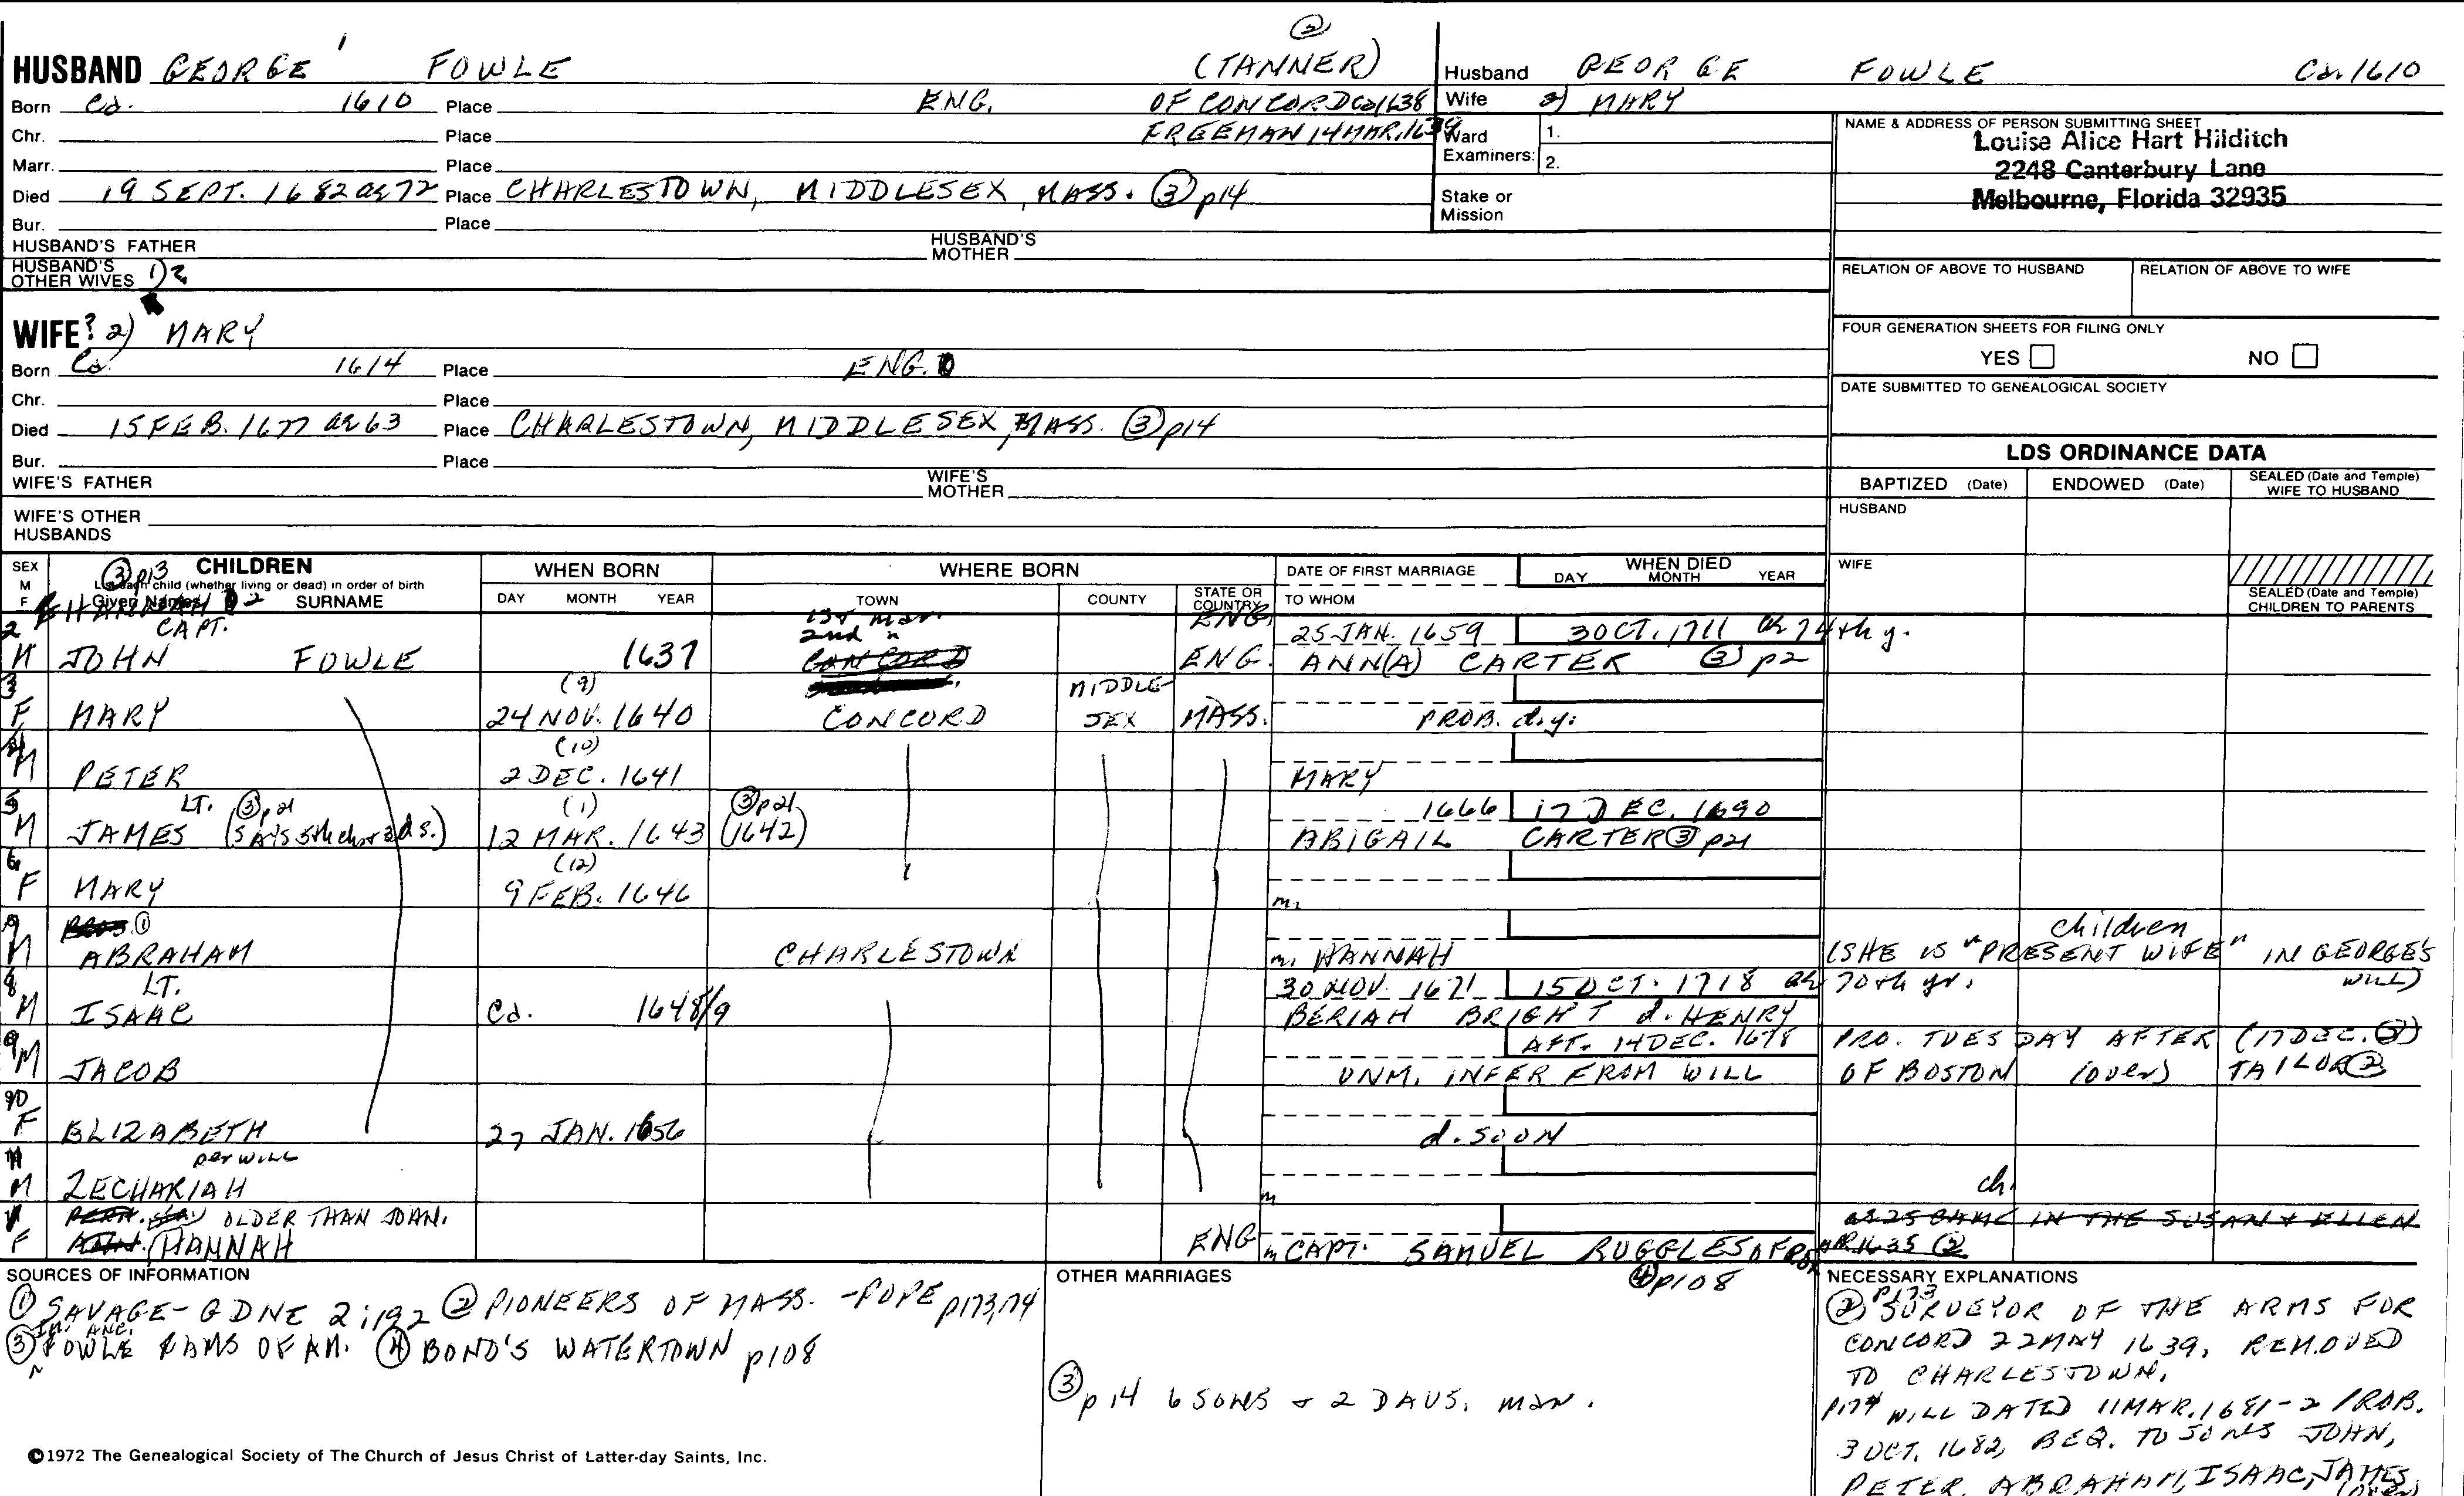 ②
HUSBAND GEORGE 1 FOWLE (TANNER)
Born Ca. 1610 Place ENG. OF CONCORD Ca 1638
Chr. Place FREEMAN 14 MAR. 1639
Marr. Place
Died 19 SEPT. 1682 ae 72 Place CHARLESTOWN, MIDDLESEX, MASS. ③ p14
Bur. Place
HUSBAND'S FATHER HUSBAND'S MOTHER
HUSBAND'S OTHER WIVES 1) ?
Husband GEORGE FOWLE Ca. 1610
Wife 2) MARY
Ward Examiners: 1.
2.
Stake or Mission
NAME & ADDRESS OF PERSON SUBMITTING SHEET
Louise Alice Hart Hilditch
2248 Canterbury Lane
Melbourne, Florida 32935
RELATION OF ABOVE TO HUSBAND RELATION OF ABOVE TO WIFE
FOUR GENERATION SHEETS FOR FILING ONLY
YES NO
DATE SUBMITTED TO GENEALOGICAL SOCIETY
WIFE? 2) MARY
Born Ca. 1614 Place ENG.
Chr. Place
Died 15 FEB. 1677 ae 63 Place CHARLESTOWN, MIDDLESEX, MASS. ③ p14
Bur. Place
WIFE'S FATHER WIFE'S MOTHER
WIFE'S OTHER HUSBANDS
LDS ORDINANCE DATA
BAPTIZED (Date) ENDOWED (Date) SEALED (Date and Temple) WIFE TO HUSBAND
HUSBAND
WIFE
SEALED (Date and Temple) CHILDREN TO PARENTS
SEX M F ③ p13 CHILDREN
List each child (whether living or dead) in order of birth
Given Names SURNAME
WHEN BORN
DAY MONTH YEAR
WHERE BORN
TOWN COUNTY STATE OR COUNTRY
DATE OF FIRST MARRIAGE
TO WHOM
WHEN DIED
DAY MONTH YEAR
HANNAH 1st mar. ENG.
2 CAPT. 2nd " 25 JAN. 1659 3 OCT. 1711 ae 74th y.
M JOHN FOWLE 1637 CONCORD ENG. ANN(A) CARTER ③ p2
3 (9) MIDDLE-
F MARY 24 NOV. 1640 CONCORD SEX MASS. PROB. d.y.
4 (10)
M PETER 2 DEC. 1641 MARY
5 LT. ③ p21 (1) ③ p21 1666 17 DEC. 1690
M JAMES 12 MAR. 1643 (1642) ABIGAIL CARTER ③ p21
6 (12)
F MARY 9 FEB. 1646 m.
① children
M ABRAHAM CHARLESTOWN m. HANNAH (SHE IS "PRESENT WIFE" IN GEORGE'S WILL)
8 LT. 30 NOV. 1671 15 OCT. 1718 ae 70th yr.
M ISAAC Ca. 1648/9 BERIAH BRIGHT d. HENRY
9 AFT. 14 DEC. 1678 PRO. TUESDAY AFTER (17 DEC. ②)
M JACOB UNM. INFER FROM WILL OF BOSTON (over) TAILOR ②
10
F ELIZABETH 27 JAN. 1656 d. soon
11 per WILL
M ZECHARIAH m ch.
OLDER THAN JOHN. ae 25 CAME IN THE SUSAN & ELLEN
F HANNAH ENG m CAPT. SAMUEL RUGGLES APR 1635 ②
④ p108
SOURCES OF INFORMATION
① SAVAGE - GDNE 2:192 ② PIONEERS OF MASS. - POPE p173,174
③ FOWLE In. ANC. FAMS OF AM. ④ BOND'S WATERTOWN p108
OTHER MARRIAGES
③ p 14 6 SONS + 2 DAUS. mar.
NECESSARY EXPLANATIONS
② p173 SURVEYOR OF THE ARMS FOR
CONCORD 22 MAY 1639, REMOVED
TO CHARLESTOWN.
p174 WILL DATED 11 MAR. 1681-2 PROB.
3 OCT. 1682, BEQ. TO SONS JOHN,
PETER, ABRAHAM, ISAAC, JAMES
(over)
©1972 The Genealogical Society of The Church of Jesus Christ of Latter-day Saints, Inc.